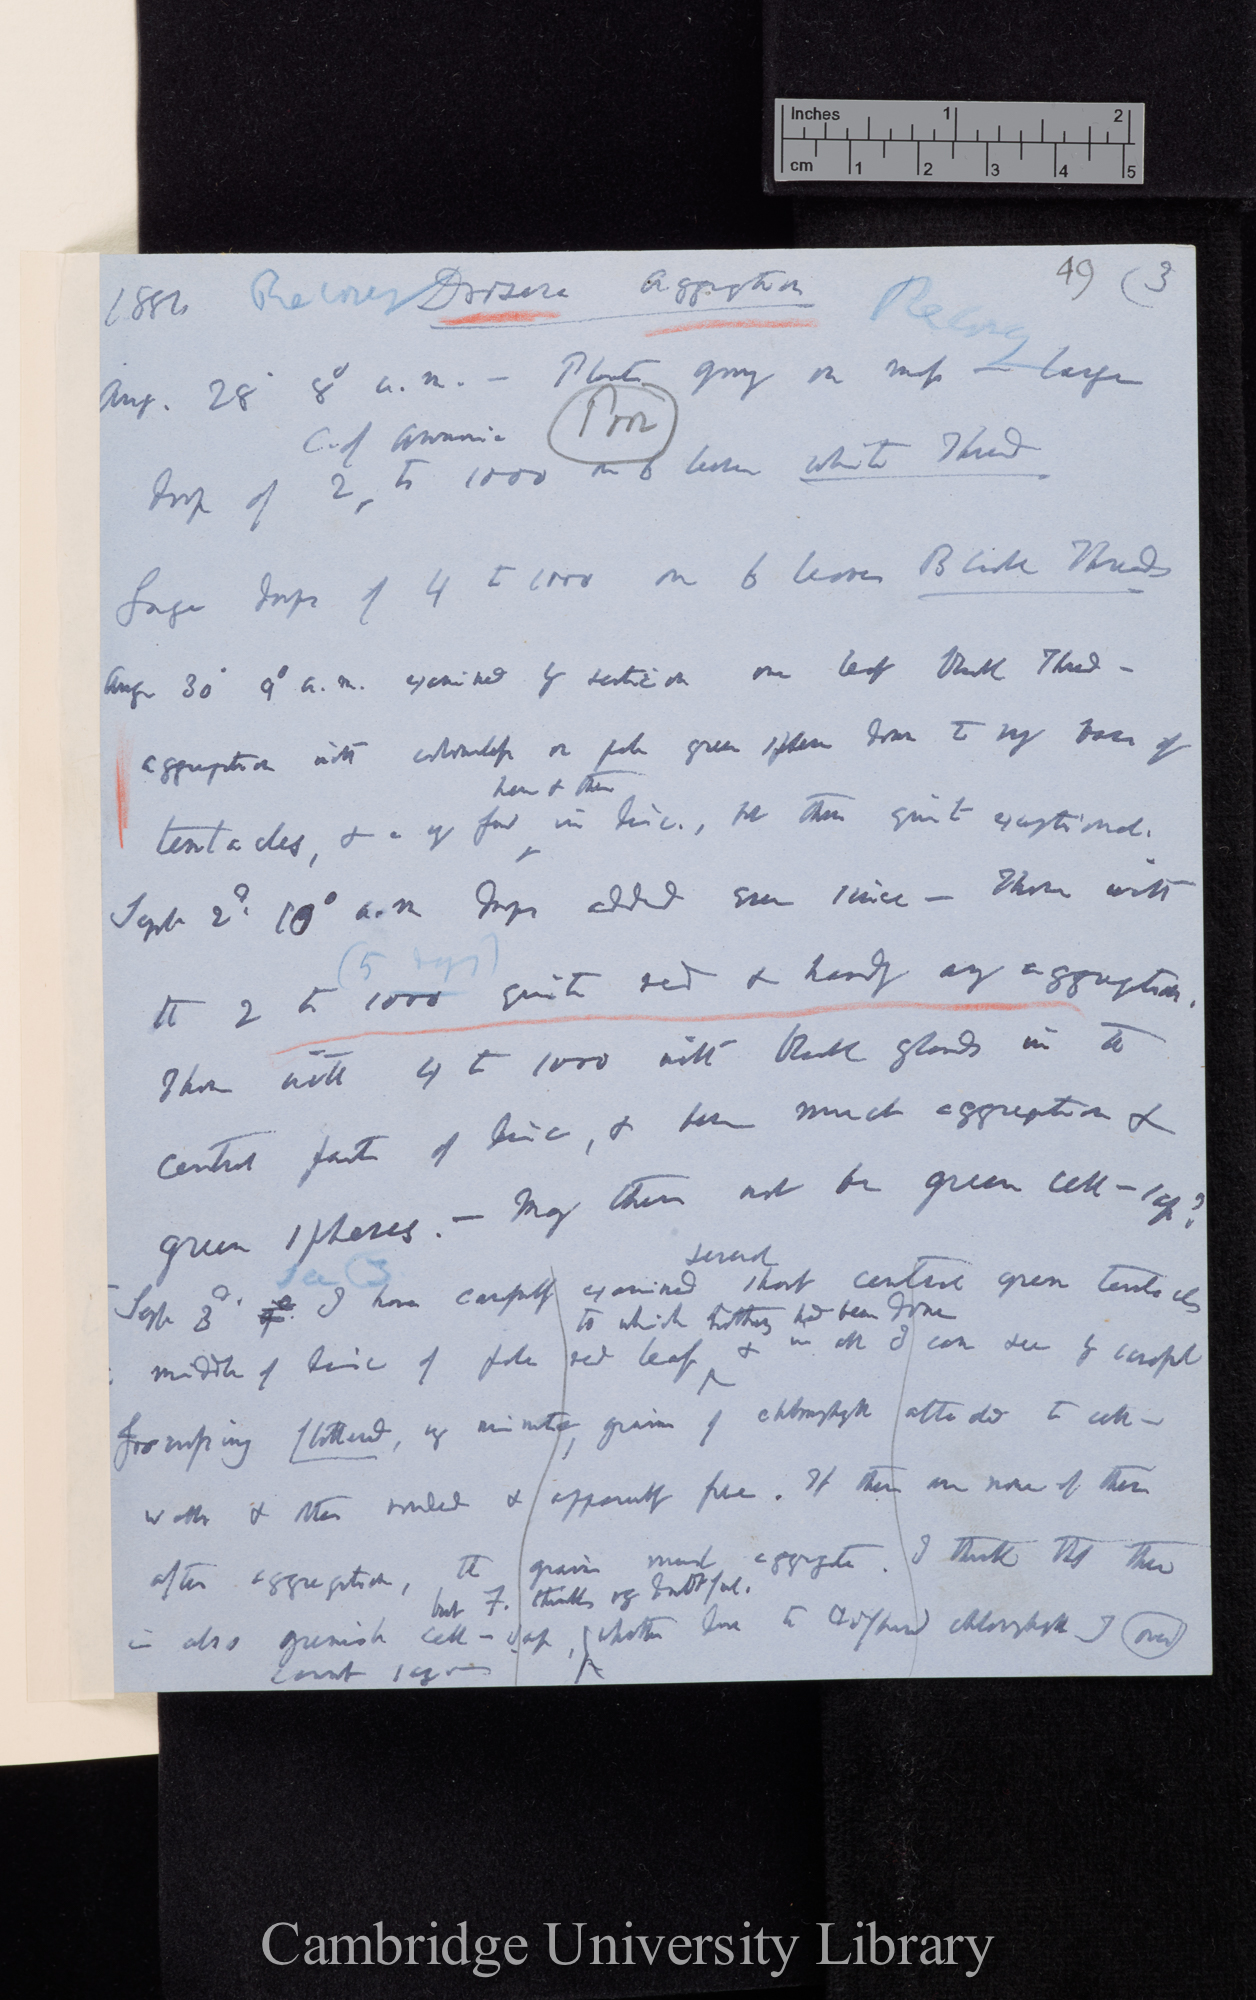 Inches 1 2
cm 1 2 3 4 5
49 (3
Recovery Drosera Aggregation Recovery
Aug. 28° 8° a.m. — Plants growing on moss — large
C. of Ammonia Poor
drop of 2 to 1000 on 6 leaves white Thread
Large drops of 4 to 1000 on 6 leaves Black Threads
Aug 30° 9° a.m. examined by section one leaf black Thread —
aggregation with colourless or pale green spheres down to very base of
here & there
tentacles, & a very few in disc., but these quite exceptional.
Sept 2d. 10° a.m drops added ever since — Those with
(5 days)
the 2 to 1000 quite red & hardly any aggregation.
Those with 4 to 1000 with black glands in the
central part of disc, & here much aggregation &
green spheres. — May these not be green cell-sap?
see (3
several
Sept 3d. I have carefully examined short central green tentacles
to which nothing had been done
middle of disc of pale red leaf, & in all I can see by careful
focussing flattened, very minute, grains of chlorophyll attached to cell-
walls & others rounded & apparently free. If there are none of these
after aggregation, the grains must aggregate. I think that there
but F. thinks very doubtful.
is also greenish cell-sap, whether due to dispersed chlorophyll I (over)
cannot say
Cambridge University Library